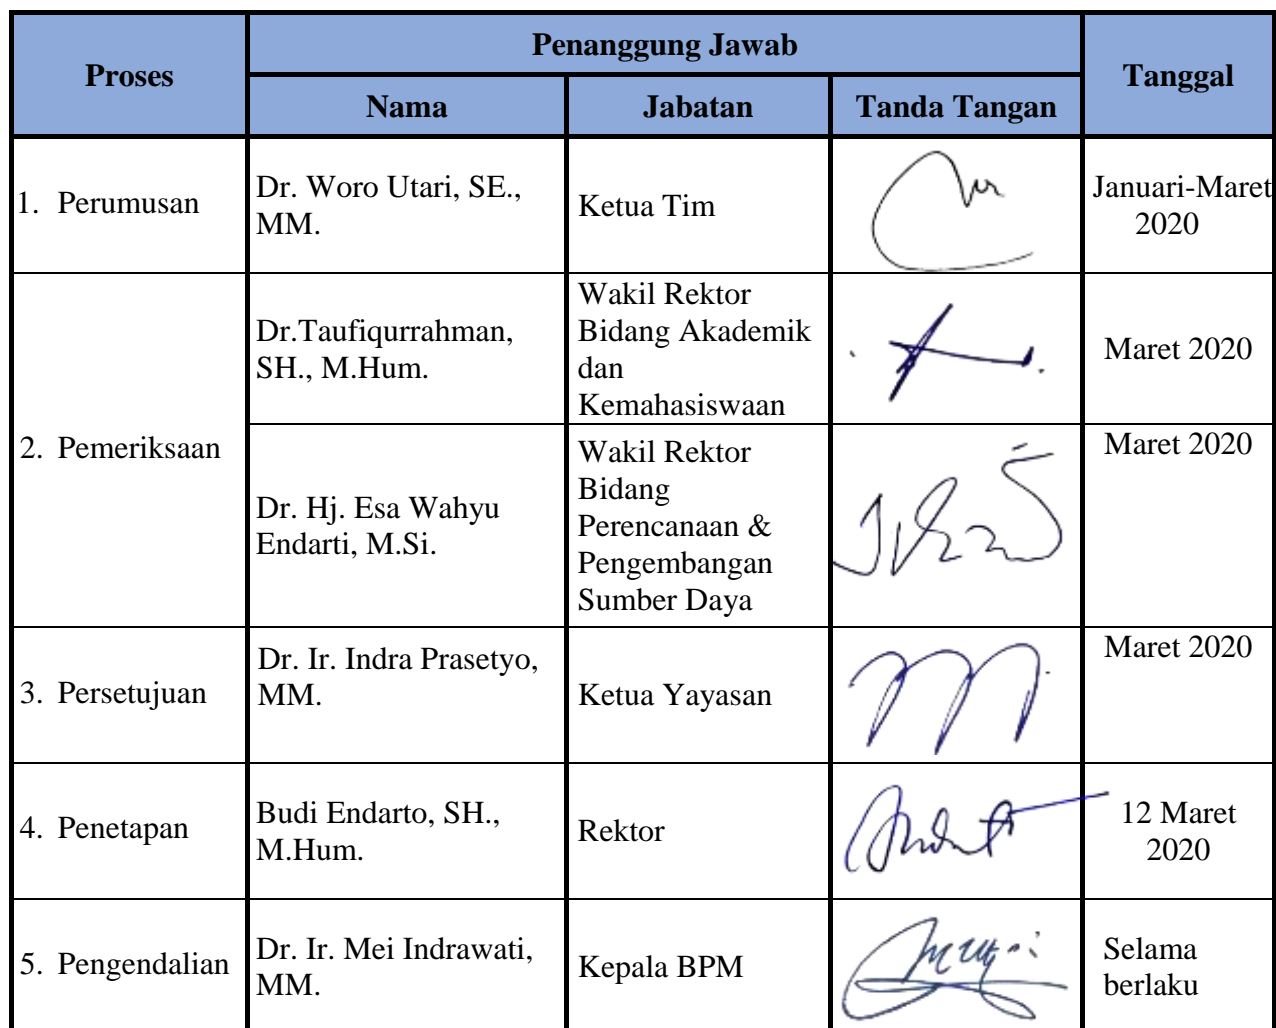 Proses
Penanggung Jawab
Tanggal
Nama
Jabatan
Tanda Tangan
1. Perumusan
Dr. Woro Utari, SE.,
MM.
Ketua Tim
Januari-Maret
2020
2. Pemeriksaan
Dr.Taufiqurrahman,
SH., M.Hum.
Wakil Rektor
Bidang Akademik
dan
Kemahasiswaan
Maret 2020
Dr. Hj. Esa Wahyu
Endarti, M.Si.
Wakil Rektor
Bidang
Perencanaan &
Pengembangan
Sumber Daya
Maret 2020
3. Persetujuan
Dr. Ir. Indra Prasetyo,
MM.
Ketua Yayasan
Maret 2020
4. Penetapan
Budi Endarto, SH.,
M.Hum.
Rektor
12 Maret
2020
5. Pengendalian
Dr. Ir. Mei Indrawati,
MM.
Kepala BPM
Selama
berlaku